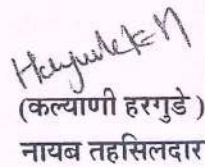 (कल्याणी हरगुडे )
नायब तहसिलदार